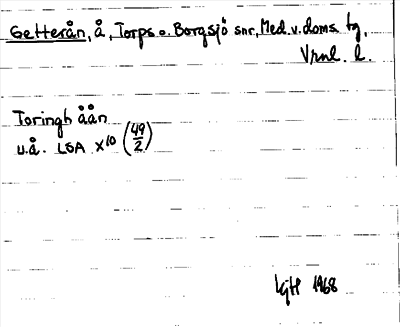 Getterån, å, Torps o. Borgsjö snr, Med. v. doms. tg,
Vrnl. l.
Toringh åån
u.å. LSA X¹⁰ (49/2)
LgH 1968